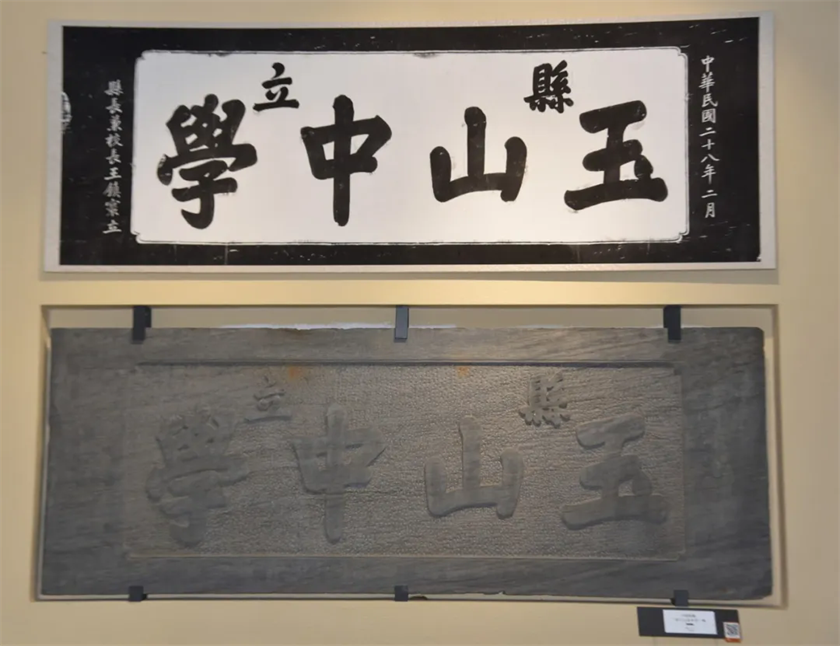 中華民國二十八年二月
縣立
玉山中學
縣長兼校長王鎮立
縣立
玉山中學